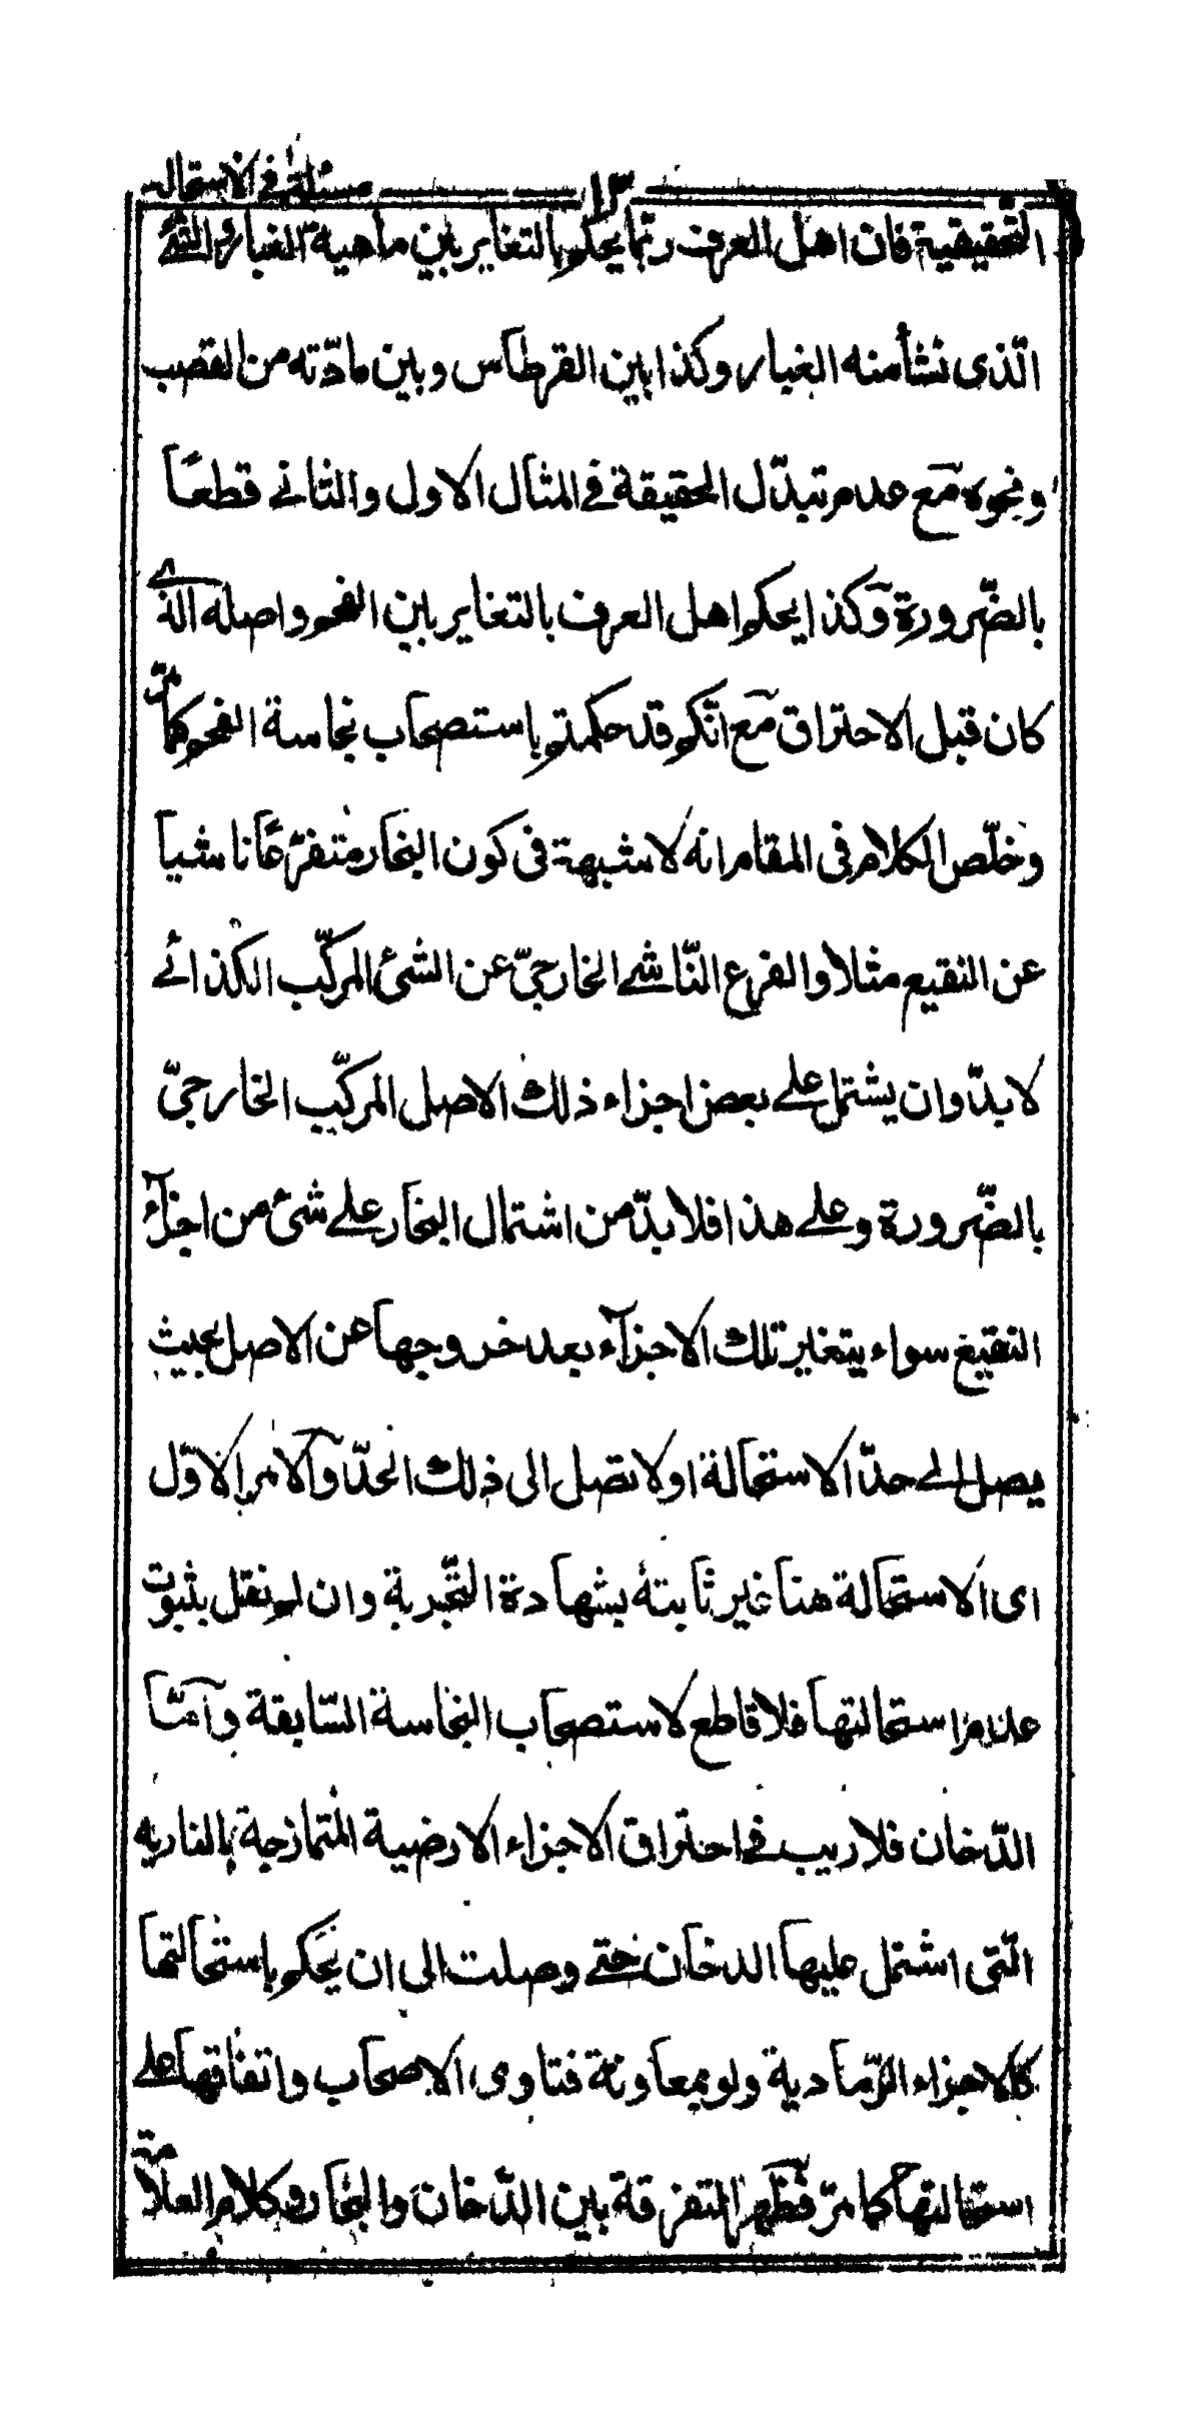 ١٣ مسئلة في الاستحالة
التحقيقية فان اهل العرف ربّما يحكم بالتغاير بين ماهية الغبار والشئ
الّذى نشأ منه الغبار وكذا بين القرطاس وبين مادّته من القصب
ونحوه مع عدم تبدّل الحقيقة في المثال الاول والثانے قطعًا
بالضّرورة وكذا يحكم اهل العرف بالتغاير بين الفحم واصله الذے
كان قبل الاحتراق مع انّكم قد حكمتم باستصحاب نجاسة الفحم كما مرّ
وخلّص الكلام فى المقام انه لا شبهة فى كون البخار متفرّعًا ناشيا
عن النقيع مثلا والفرع النّاشے الخارجىّ عن الشئ المركّب الكذائے
لا بدّ وان يشتمل علے بعض اجزاء ذلك الاصل المركّب الخارجىّ
بالضّرورة وعلے هذا فلا بدّ من اشتمال البخار علے شئ من اجزاء
النقيع سواء يتغير تلك الاجزآء بعد خروجها عن الاصل بحيث
يصل الے حدّ الاستحالة او لا تصل الى ذلك الحدّ والامر الاوّل
اى الاستحالة هنا غير ثابتة بشهادة التّجربة وان لم نقل بثبوت
عدم استحالتها فلا قاطع لاستصحاب النجاسة السّابقة وامّا
الدّخان فلا ريب في احتراق الاجزاء الارضية المتمازجة بالناريه
الّتى اشتمل عليها الدخان حتے وصلت الى ان يحكم باستحالتها
كالاجزاء الرّمادية ولو بمعاونة فتاوى الاصحاب واتفاقها علے
استحالتها كما مرّ فظهر المتفرقة بين الدّخان والبخار وكلام العلّامة